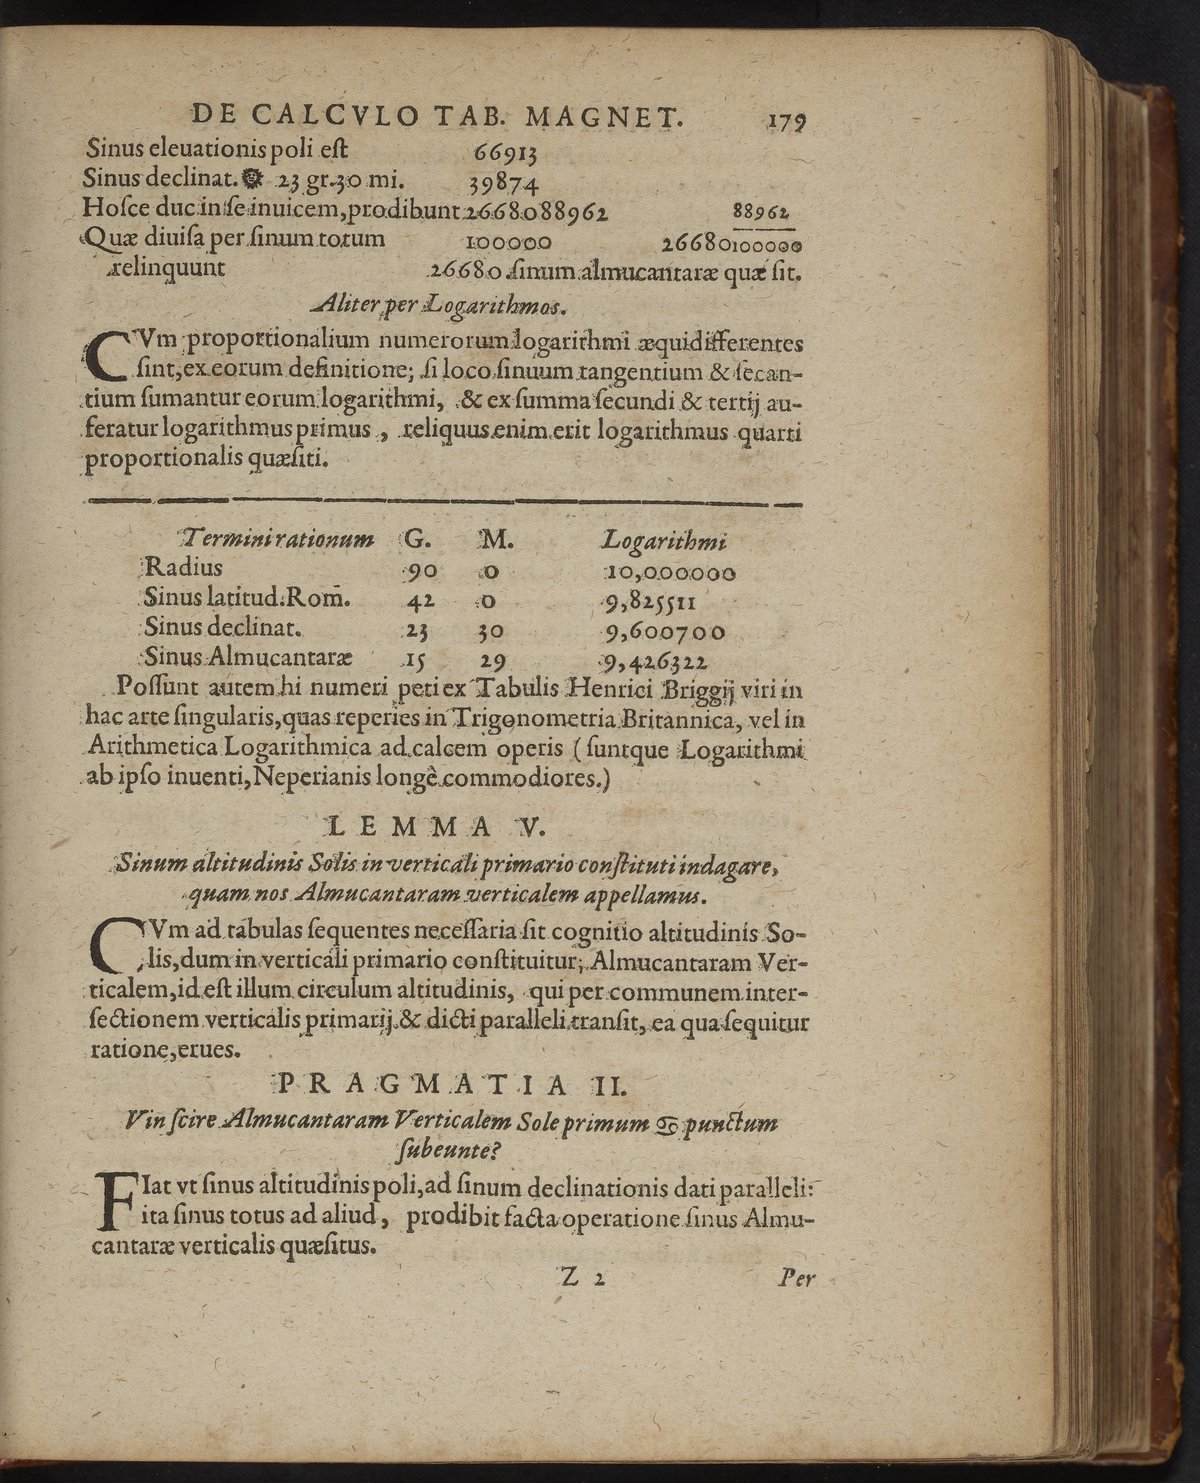 DE CALCVLO TAB. MAGNET. 179
Sinus eleuationis poli eſt 66913
Sinus declinat. 23 gr. 30 mi. 39874
Hoſce duc in ſe inuicem, prodibunt 2668088962 88962
Quæ diuiſa per ſinum totum 100000 26680100000
relinquunt 26680 ſinum almucantaræ quæ ſit.
Aliter per Logarithmos.
CVm proportionalium numerorum logarithmi æquidifferentes
ſint, ex eorum definitione; ſi loco ſinuum tangentium & ſecan-
tium ſumantur eorum logarithmi, & ex ſumma ſecundi & tertij au-
feratur logarithmus primus, reliquus enim erit logarithmus quarti
proportionalis quæſiti.
Termini rationum G. M. Logarithmi
Radius 90 0 10,000000
Sinus latitud. Rom̃. 42 0 9,825511
Sinus declinat. 23 30 9,600700
Sinus Almucantaræ 15 29 9,426322
Poſſunt autem hi numeri peti ex Tabulis Henrici Briggij viri in
hac arte ſingularis, quas reperies in Trigonometria Britannica, vel in
Arithmetica Logarithmica ad calcem operis (ſuntque Logarithmi
ab ipſo inuenti, Neperianis longè commodiores.)
LEMMA V.
Sinum altitudinis Solis in verticali primario conſtituti indagare,
quam nos Almucantaram verticalem appellamus.
CVm ad tabulas ſequentes neceſſaria ſit cognitio altitudinis So-
lis, dum in verticali primario conſtituitur; Almucantaram Ver-
ticalem, id eſt illum circulum altitudinis, qui per communem inter-
ſectionem verticalis primarij & dicti paralleli tranſit, ea qua ſequitur
ratione, erues.
PRAGMATIA II.
Vin ſcire Almucantaram Verticalem Sole primum ♋ punctum
ſubeunte?
FIat vt ſinus altitudinis poli, ad ſinum declinationis dati paralleli:
ita ſinus totus ad aliud, prodibit facta operatione ſinus Almu-
cantaræ verticalis quæſitus.
Z 2 Per